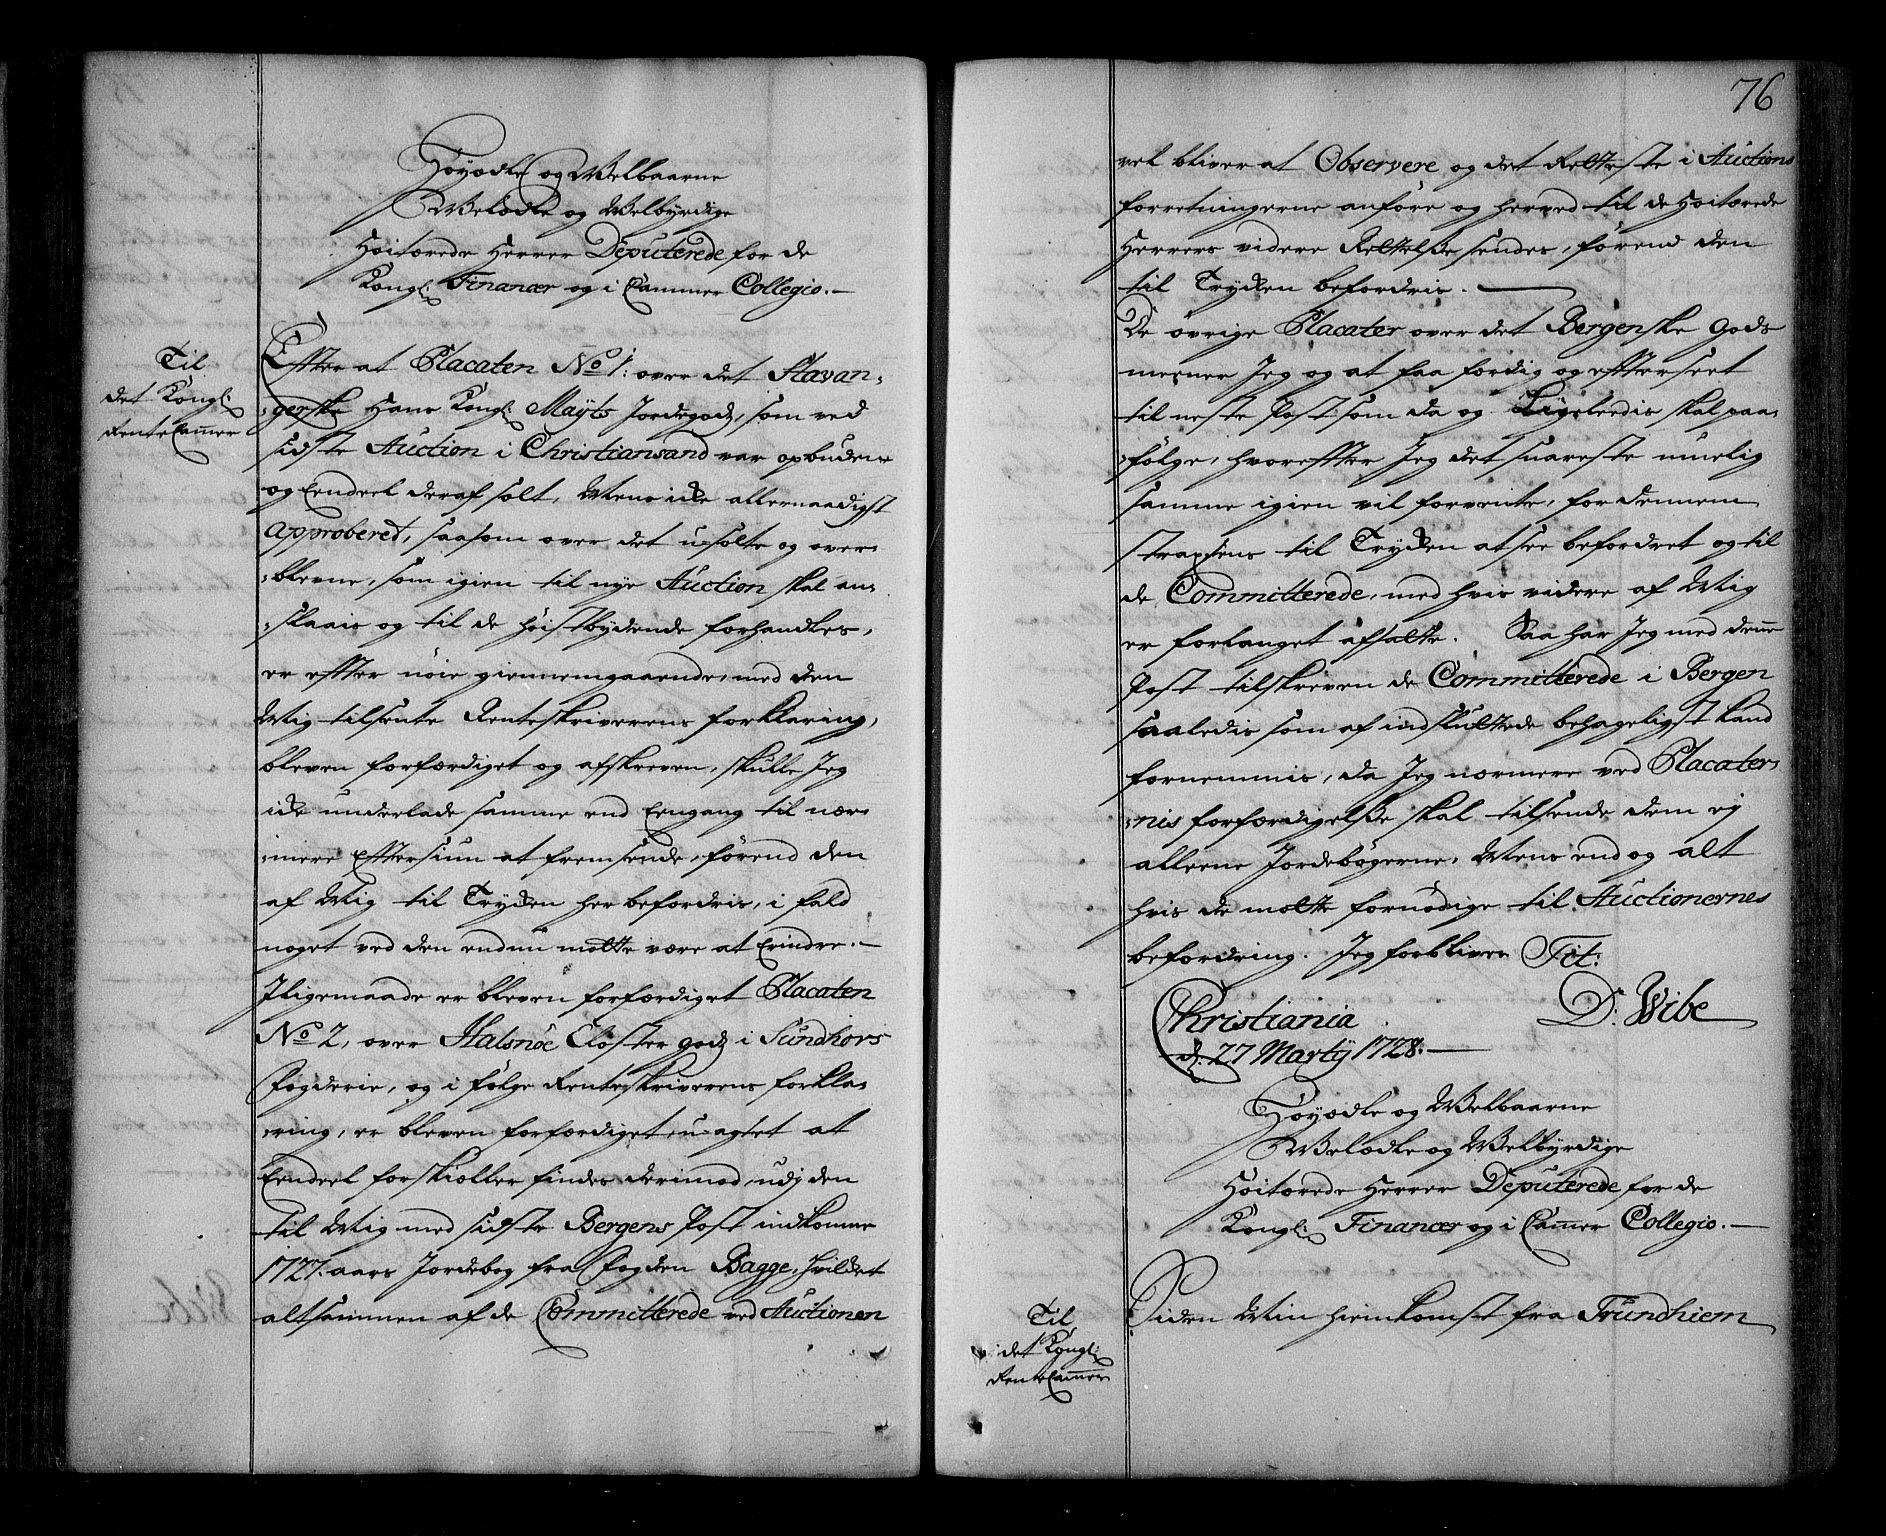 Høyædle og Welbaarne
Welædle og Welbyrdige
Høitærede Herrer Deputerede for de
Kongl: Financer og i Cammer Collegio.
Til
det Kongl:
RenteCammer
Effter at Placaten No 1: over det Stavan-
gerske Hans Kongl: Mayts Jordegods, som ved
sidste Auction i Christiansand var opbuden
og Eendeel deraf solt, Mens icke allernaadigst
approberet, saasom over det u-solte og over-
blevne, som igien til nye Auction skal an-
slaais og til de høistbydende forhandles,
er effter nøie giennemgaaende, med den
Mig tilsente Renteskriverens forklaring,
bleven forfærdiget og afskreven, skulle Jeg
icke underlade samme end Eengang til nær-
mere Eftersiun at fremsende, førend den
af Mig til Trycken her befordris, i fald
noget ved den endnu motte være at Erindre.
Iligemaade er bleven forfærdiget Placaten
No 2, over Halsnøe Closter gods i Sundhors
Fogderie, og i følge Renteskriverens forkla-
ring, er bleven forfærdiget, u-agtet at
Eendeel forskiæller findes derimod, udj den
til Mig med sidste Bergens Post indkomne
1727. aars Jordebog fra Fogden Bagge, hvilcket
altsammen af de Committerede ved Auctionen
76
vel bliver at Observere og det Retteste i Auctions
forretningerne anføre og herved til de Høitærede
Herrers videre Rettelße sendes, førend den
til Trycken befordris.
De øvrige Placater over det Bergenske Gods
meener Jeg og at faa færdig og effterseet
til neste Post som da og Ligeledis skal paa-
følge, hvoreffter Jeg det snareste muelig
samme igien vil forvente, for dennem
strax sens til Trycken at see befordret og til
de Committerede, med hvis videre af Mig
er forlanget afsatte. Saa har Jeg med denne
Post tilskreven de Committerede i Bergen
saaledis som af indsluttede behageligst kand
fornemmis, da Jeg nærmere ved Placater-
nis forfærdigelße skal tilsende dem ej
alleene Jordebøgerne, Mens end og alt
hvis de motte fornødige til Auctionernes
befordring. Jeg forbliver Tit:
D: Wibe
Christiania
d: 27 Martij 1728.
Høyædle og Welbaarne
Welædle og Welbyrdige
Høitærede Herrer Deputerede for de
Kongl: Financer og i Cammer Collegio.
Til
det Kongl:
RenteCammer
Siden Min Hiemkomst fra Trundhiem